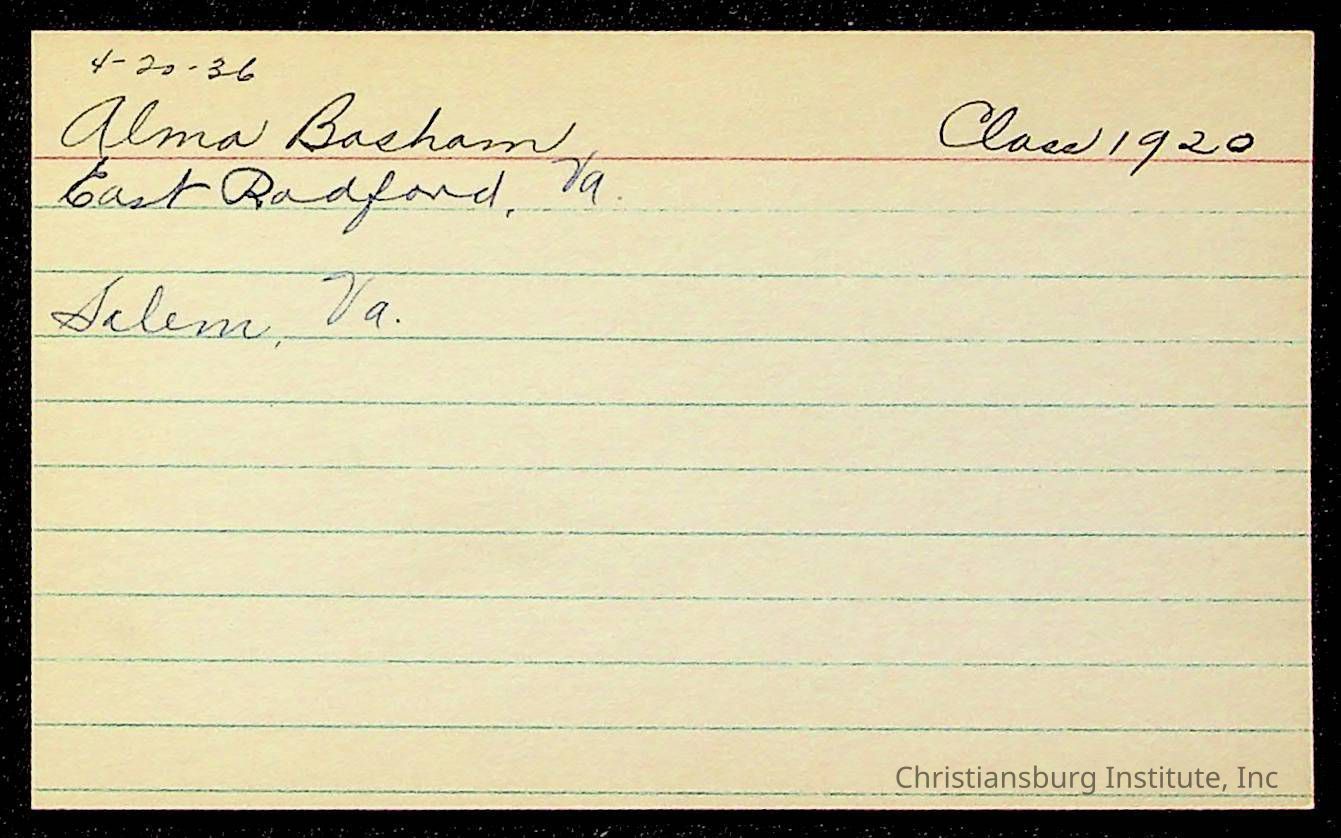 4-20-36
Alma Basham Class 1920
East Radford, Va.
Salem, Va.
Christiansburg Institute, Inc